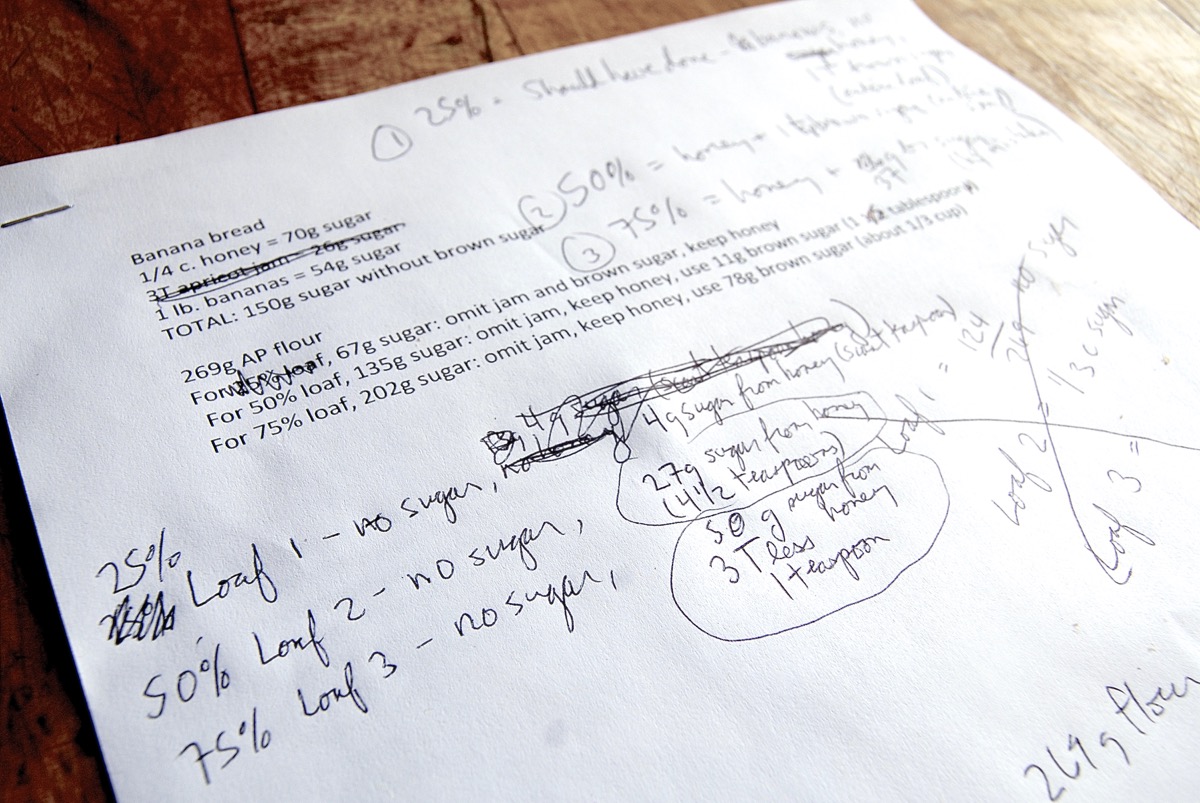 ① 25% = Should have done - bananas, no
honey,
1 T brown
② 50% = honey + 1 brown
③ 75% = honey + 37
Banana bread
1/4 c. honey = 70g sugar
3T apricot jam = 26g sugar
1 lb. bananas = 54g sugar
TOTAL: 150g sugar without brown sugar
269g AP flour
For 25% loaf, 67g sugar: omit jam and brown sugar, keep honey
For 50% loaf, 135g sugar: omit jam, keep honey, use 11g brown sugar (1 tablespoon)
For 75% loaf, 202g sugar: omit jam, keep honey, use 78g brown sugar (about 1/3 cup)
25% Loaf 1 - no sugar,
4g sugar from honey (scant teaspoon)
50% Loaf 2 - no sugar,
27g sugar from honey
(4 1/2 teaspoons)
75% Loaf 3 - no sugar,
50 g sugar from
honey
3 T less
1 teaspoon
Loaf 1 = 124/269 no sugar
Loaf 2 = 1/3 c sugar
Loaf 3 =
269 g flour